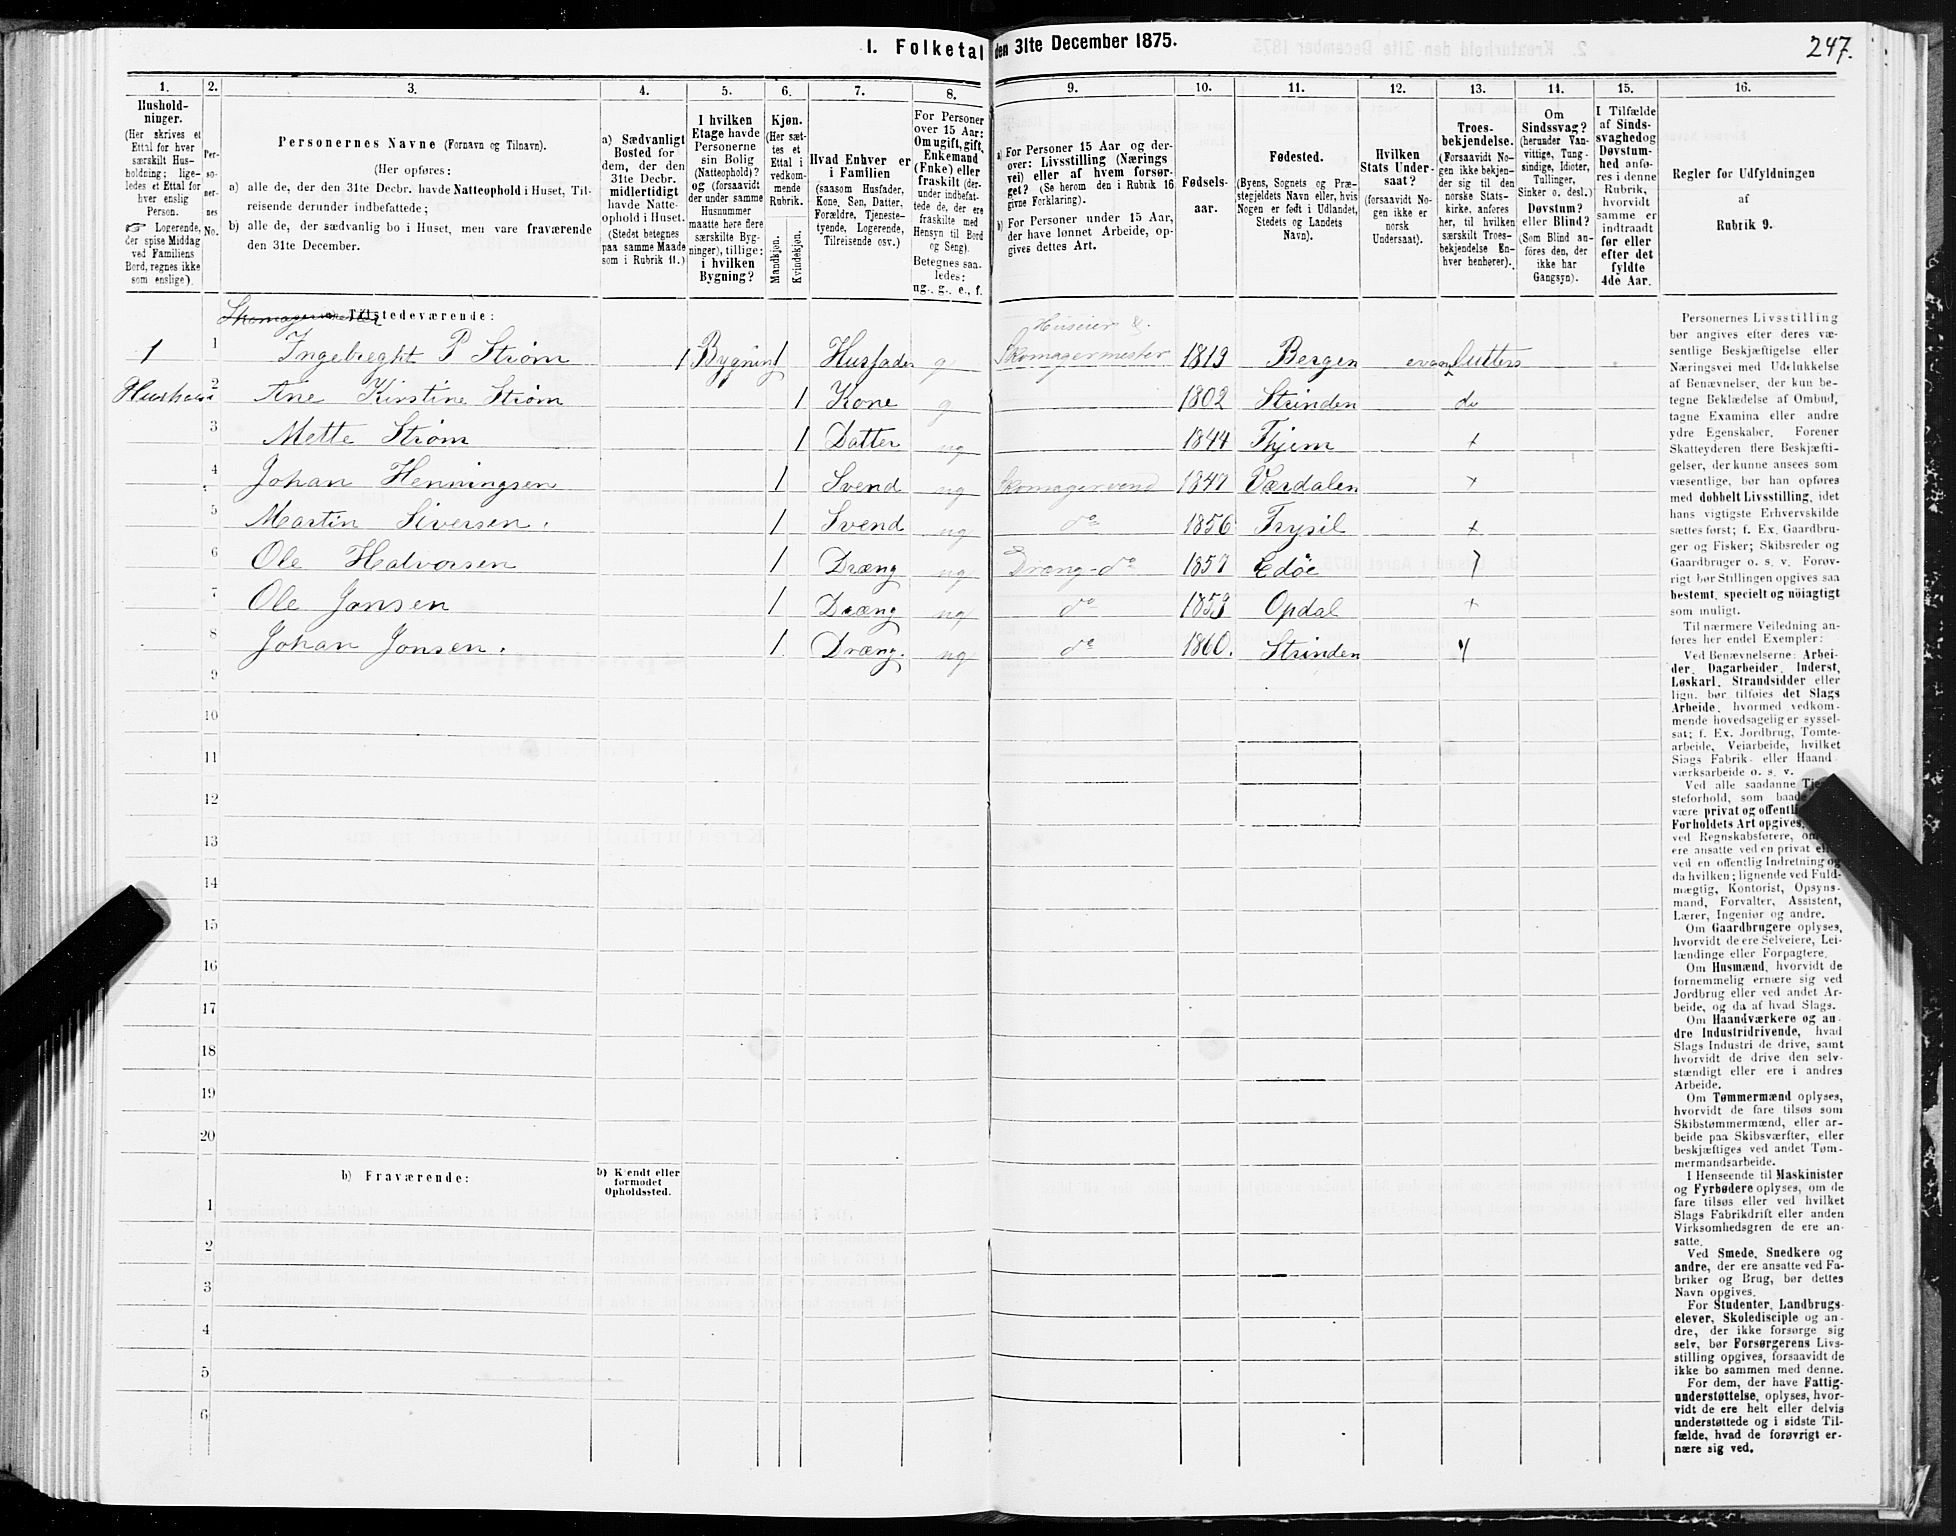 I. Folketal den 31te December 1875.
247.
1. 2. 3. 4. 5. 6. 7. 8. 9. 10. 11. 12. 13. 14. 15. 16.
Hushold-
ninger.
(Her skrives et
Ettal for hver
særskilt Hus-
holdning; lige-
ledes et Ettal for
hver enslig
Person.
☞ Logerende,
der spise Middag
ved Familiens
Bord, regnes ikke
som enslige).
Per-
so-
ner-
nes
No.
Personernes Navne (Fornavn og Tilnavn).
(Her opføres:
a) alle de, der den 31te Decbr. havde Natteophold i Huset, Til-
reisende derunder indbefattede;
b) alle de, der sædvanlig bo i Huset, men vare fraværende
den 31te December.
a) Sædvanligt
Bosted for
dem, der den
31te Decbr.
midlertidigt
havde Natte-
ophold i Huset.
(Stedet betegnes
paa samme Maade
som i Rubrik 11.)
I hvilken
Etage havde
Personerne
sin Bolig
(Natteophold)?
og (forsaavidt
der under samme
Husnummer
maatte høre flere
særskilte Byg-
ninger), tillige:
i hvilken
Bygning?
Kjøn.
(Her sæt-
tes et
Ettal i
vedkom-
mende
Rubrik.
Mandkjøn.
Kvindekjøn.
Hvad Enhver er
i Familien
(saasom Husfader,
Kone, Søn, Datter,
Forældre, Tjeneste-
tyende, Logerende,
Tilreisende osv.)
For Personer
over 15 Aar:
Om ugift, gift,
Enkemand
(Enke) eller
fraskilt (der-
under indbefat-
tede de, der ere
fraskilte med
Hensyn til Bord
og Seng).
Betegnes saa-
ledes:
ug., g., e., f.
a) For Personer 15 Aar og der-
over: Livsstilling (Nærings
vei) eller af hvem forsør-
get? (Se herom den i Rubrik 16
givne Forklaring).
b) For Personer under 15 Aar,
der have lønnet Arbeide, op-
gives dettes Art.
Fødsels-
aar.
Fødested.
(Byens, Sognets og Præ-
stegjeldets Navn eller, hvis
Nogen er født i Udlandet,
Stedets og Landets
Navn).
Hvilken
Stats Under-
saat?
(forsaavidt No-
gen ikke er
norsk
Undersaat).
Troes-
bekjendelse.
(Forsaavidt No-
gen ikke bekjen-
der sig til den
norske Stats-
kirke, anføres
her, til hvilken
særskilt Troes-
bekjendelse En-
hver henhører).
Om
Sindssvag?
(herunder Van-
vittige, Tung-
sindige, Idioter,
Tullinger,
Sinker o. desl.)
Døvstum?
eller Blind?
(Som Blind an-
føres den, der
ikke har
Gangsyn).
I Tilfælde
af Sinds-
svaghed og
Døvstum-
hed anfø-
res i denne
Rubrik,
hvorvidt
samme er
indtraadt
før eller
efter det
fyldte
4de Aar.
Regler for Udfyldningen
af
Rubrik 9.
Tilstedeværende:
Huseier &
1 1 Ingebreght P Strøm 1 Bygning 1 Husfader g Skomagermester 1819 Bergen evan lutters
2 Ane Kirstine Strøm 1 Kone g 1802 Strinden do
3 Mette Strøm 1 Datter ug 1844 Thjem +
4 Johan Henningsen 1 Svend ug Skomagersvend 1847 Værdalen +
5 Martin Siversen. 1 Svend ug do 1856 Trysil +
6 Ole Halvorsen 1 Dræng ug Dræng-do 1857 Edøe
7 Ole Jonsen 1 Dræng ug do 1859 Opdal +
8 Johan Jonsen. 1 Dræng. ug do 1860. Strinden
9
10
11
12
13
14
15
16
17
18
19
20
b) Fraværende:
b) Kjendt eller
formodet
Opholdssted.
1
2
3
4
5
6
Personernes Livsstilling
bør angives efter deres væ-
sentlige Beskjæftigelse eller
Næringsvei med Udelukkelse
af Benævnelser, der kun be-
tegne Beklædelse af Ombud,
tagne Examina eller andre
ydre Egenskaber. Forener
Skatteyderen flere Beskjæfti-
gelser, der kunne ansees som
væsentlige, bør han opføres
med dobbelt Livsstilling, idet
hans vigtigste Erhvervskilde
sættes først; f. Ex. Gaardbru-
ger og Fisker; Skibsreder og
Gaardbruger o. s. v. Forøv-
rigt bør Stillingen opgives saa
bestemt, specielt og nøiagtigt
som muligt.
Til nærmere Veiledning an-
føres her endel Exempler:
Ved Benævnelserne: Arbei-
der, Dagarbeider, Inderst,
Løskarl, Strandsidder eller
lign. bør tilføies det Slags
Arbeide, hvormed vedkom-
mende hovedsagelig er syssel-
sat; f. Ex. Jordbrug, Tomte-
arbeide, Veiarbeide, hvilket
Slags Fabrik- eller Haand-
værksarbeide o. s. v.
Ved alle saadanne
steforhold, som
være privat og
Forholdets Art opgives,
ved Regnskabsførere,
ere ansatte ved en privat
ved en offentlig Indretning og
da hvilken; lignende ved Fuld-
mægtig, Kontorist, Opsyns-
mand, Forvalter, Assistent,
Lærer, Ingeniør og andre.
Om Gaardbrugere oplyses,
hvorvidt de ere Selveiere, Lei-
lændinge eller Forpagtere.
Om Husmænd, hvorvidt de
fornemmelig ernære sig ved
Jordbrug eller ved andet Ar-
beide, og da af hvad Slags.
Om Haandværkere og an-
dre Industridrivende, hvad
Slags Industri de drive, samt
hvorvidt de drive den selv-
stændigt eller ere i andres
Arbeide.
Om Tømmermænd oplyses,
hvorvidt de fare tilsøs som
Skibstømmermænd, eller ar-
beide paa Skibsværfter, eller
beskjæftiges ved andet Tøm-
mermandsarbeide.
I Henseende til Maskinister
og Fyrbødere oplyses, om de
fare tilsøs eller ved hvilket
Slags Fabrikdrift eller anden
Virksomhedsgren de ere an-
satte.
Ved Smede, Snedkere og
andre, der ere ansatte ved Fa-
briker og Brug, bør dettes
Navn opgives.
For Studenter, Landbrugs-
elever, Skoledisciple og an-
dre, der ikke forsørge sig
selv, bør Forsørgerens Livs-
stilling opgives, forsaavidt de
ikke bo sammen med denne.
For dem, der have Fattig-
understøttelse, oplyses, hvor-
vidt de ere helt eller delvis
understøttede og i sidste Til-
fælde, hvad de forøvrigt er-
nære sig ved.